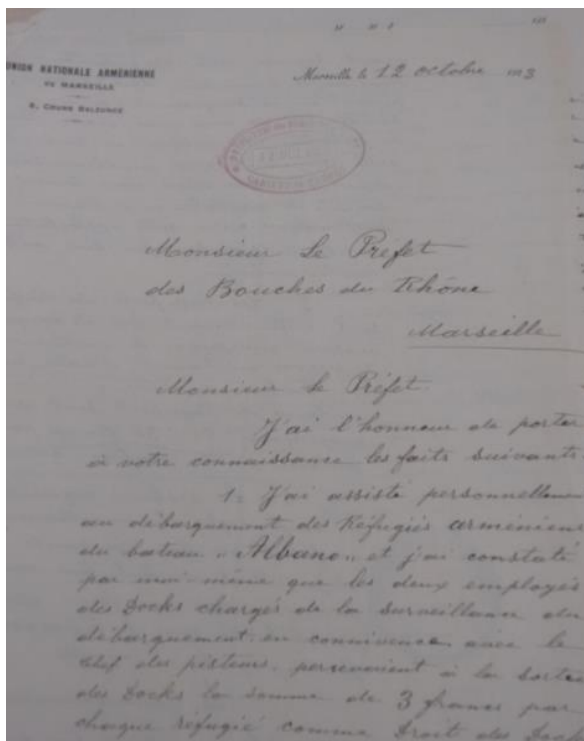 UNION NATIONALE ARMÉNIENNE
DE MARSEILLE
Marseille le 12 octobre 1923
COURS BELZUNCE
Monsieur Le Prefet
des Bouches du Rhône
Marseille
Monsieur Le Préfet
J'ai l'honneur de porter
à votre connaissance les faits suivants
1= J'ai assisté personnellemen
au débarquement des Réfugiés arménien
du bateau "Albano" et j'ai constaté
par moi-même que les deux employés
des Docks chargés de la surveillance du
débarquement en connivence avec le
Chef des pisteurs, percevaient à la sortie
des Docks la somme de 3 francs par
chaque réfugié comme Droit des Dock